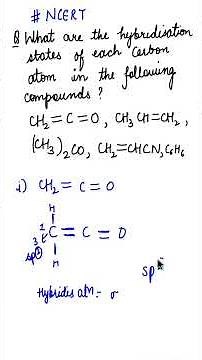 # NCERT
Q What are the hybridisation
states of each Carbon
atom in the following
compounds ?
CH₂=C=O, CH₃CH=CH₂,
(CH₃)₂CO, CH₂=CHCN, C₆H₆
i) CH₂ = C = O
H
1
2
3 C = C = O
sp²
H
sp
Hybrides atm = σ